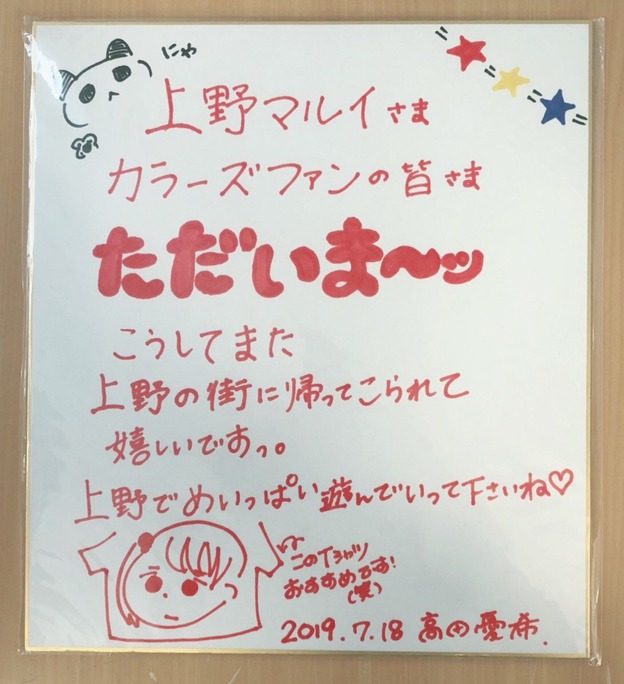 にゃ
上野マルイさま
カラーズファンの皆さま
ただいま〜ッ
こうしてまた
上野の街に帰ってこられて
嬉しいですっ。
上野でめいっぱい遊んでいって下さいね♡
このTシャツ
おすすめです!
(笑)
2019.7.18 高田憂希.